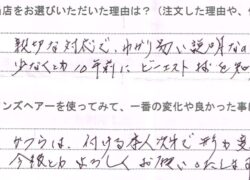 店をお選びいただいた理由は？（注文した理由や、
親切な対応で、わかり易い説明なの
少なくとも10年前にピーエスト様を知
ンズヘアーを使ってみて、一番の変化や良かった事に
かつらは、付ける本人次第で形が変
今後ともよろしくお願いいたしま